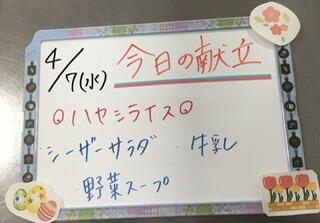 4/7(水) 今日の献立
◎ハヤシライス◎
・シーザーサラダ ・牛乳
・野菜スープ